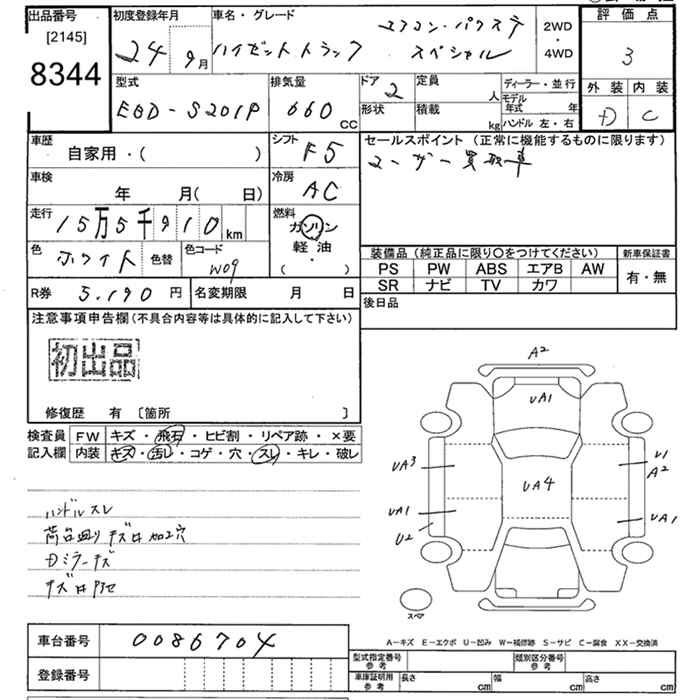 出品番号
[2145]
8344
初度登録年月
24 9月
車名・グレード
エアコン・パワステ
ハイゼットトラック スペシャル
2WD
・
4WD
評価点
3
外装 内装
D C
型式
EBD-S201P
排気量
660 CC
ドア 2
定員 人
形状
積載 kg
ディーラー・並行
モデル年式 年
ハンドル 左・右
車歴
自家用・( )
シフト
F5
セールスポイント (正常に機能するものに限ります)
ユーザー買取車
車検
年 月(日)
冷房
AC
走行
15万5千910 km
燃料
ガソリン
軽油
( )
色
ホワイト
色替
色コード
W09
装備品 (純正品に限り〇をつけてください)
新車保証書
PS PW ABS エアB AW
SR ナビ TV カワ
有・無
R券 5,190 円
名変期限 月 日
後日品
注意事項申告欄 (不具合内容等は具体的に記入して下さい)
初出品
修復歴 有 〔箇所 〕
検査員記入欄
FW キズ・飛石・ヒビ割・リペア跡・×要
内装 キズ・汚レ・コゲ・穴・スレ・キレ・破レ
ハンドルスレ
荷台廻りキズ凹加工穴
Dミラーキズ
キズ凹
A2
UA1
UA3
U1
A2
UA4
UA1
U2
UA1
スペア
A-キズ E-エクボ U-凹み W-補修跡 S-サビ C-腐食 XX-交換済
車台番号 0086704
登録番号
型式指定番号 参考
類別区分番号 参考
車庫証明用 参考
長さ cm 幅 cm 高さ cm